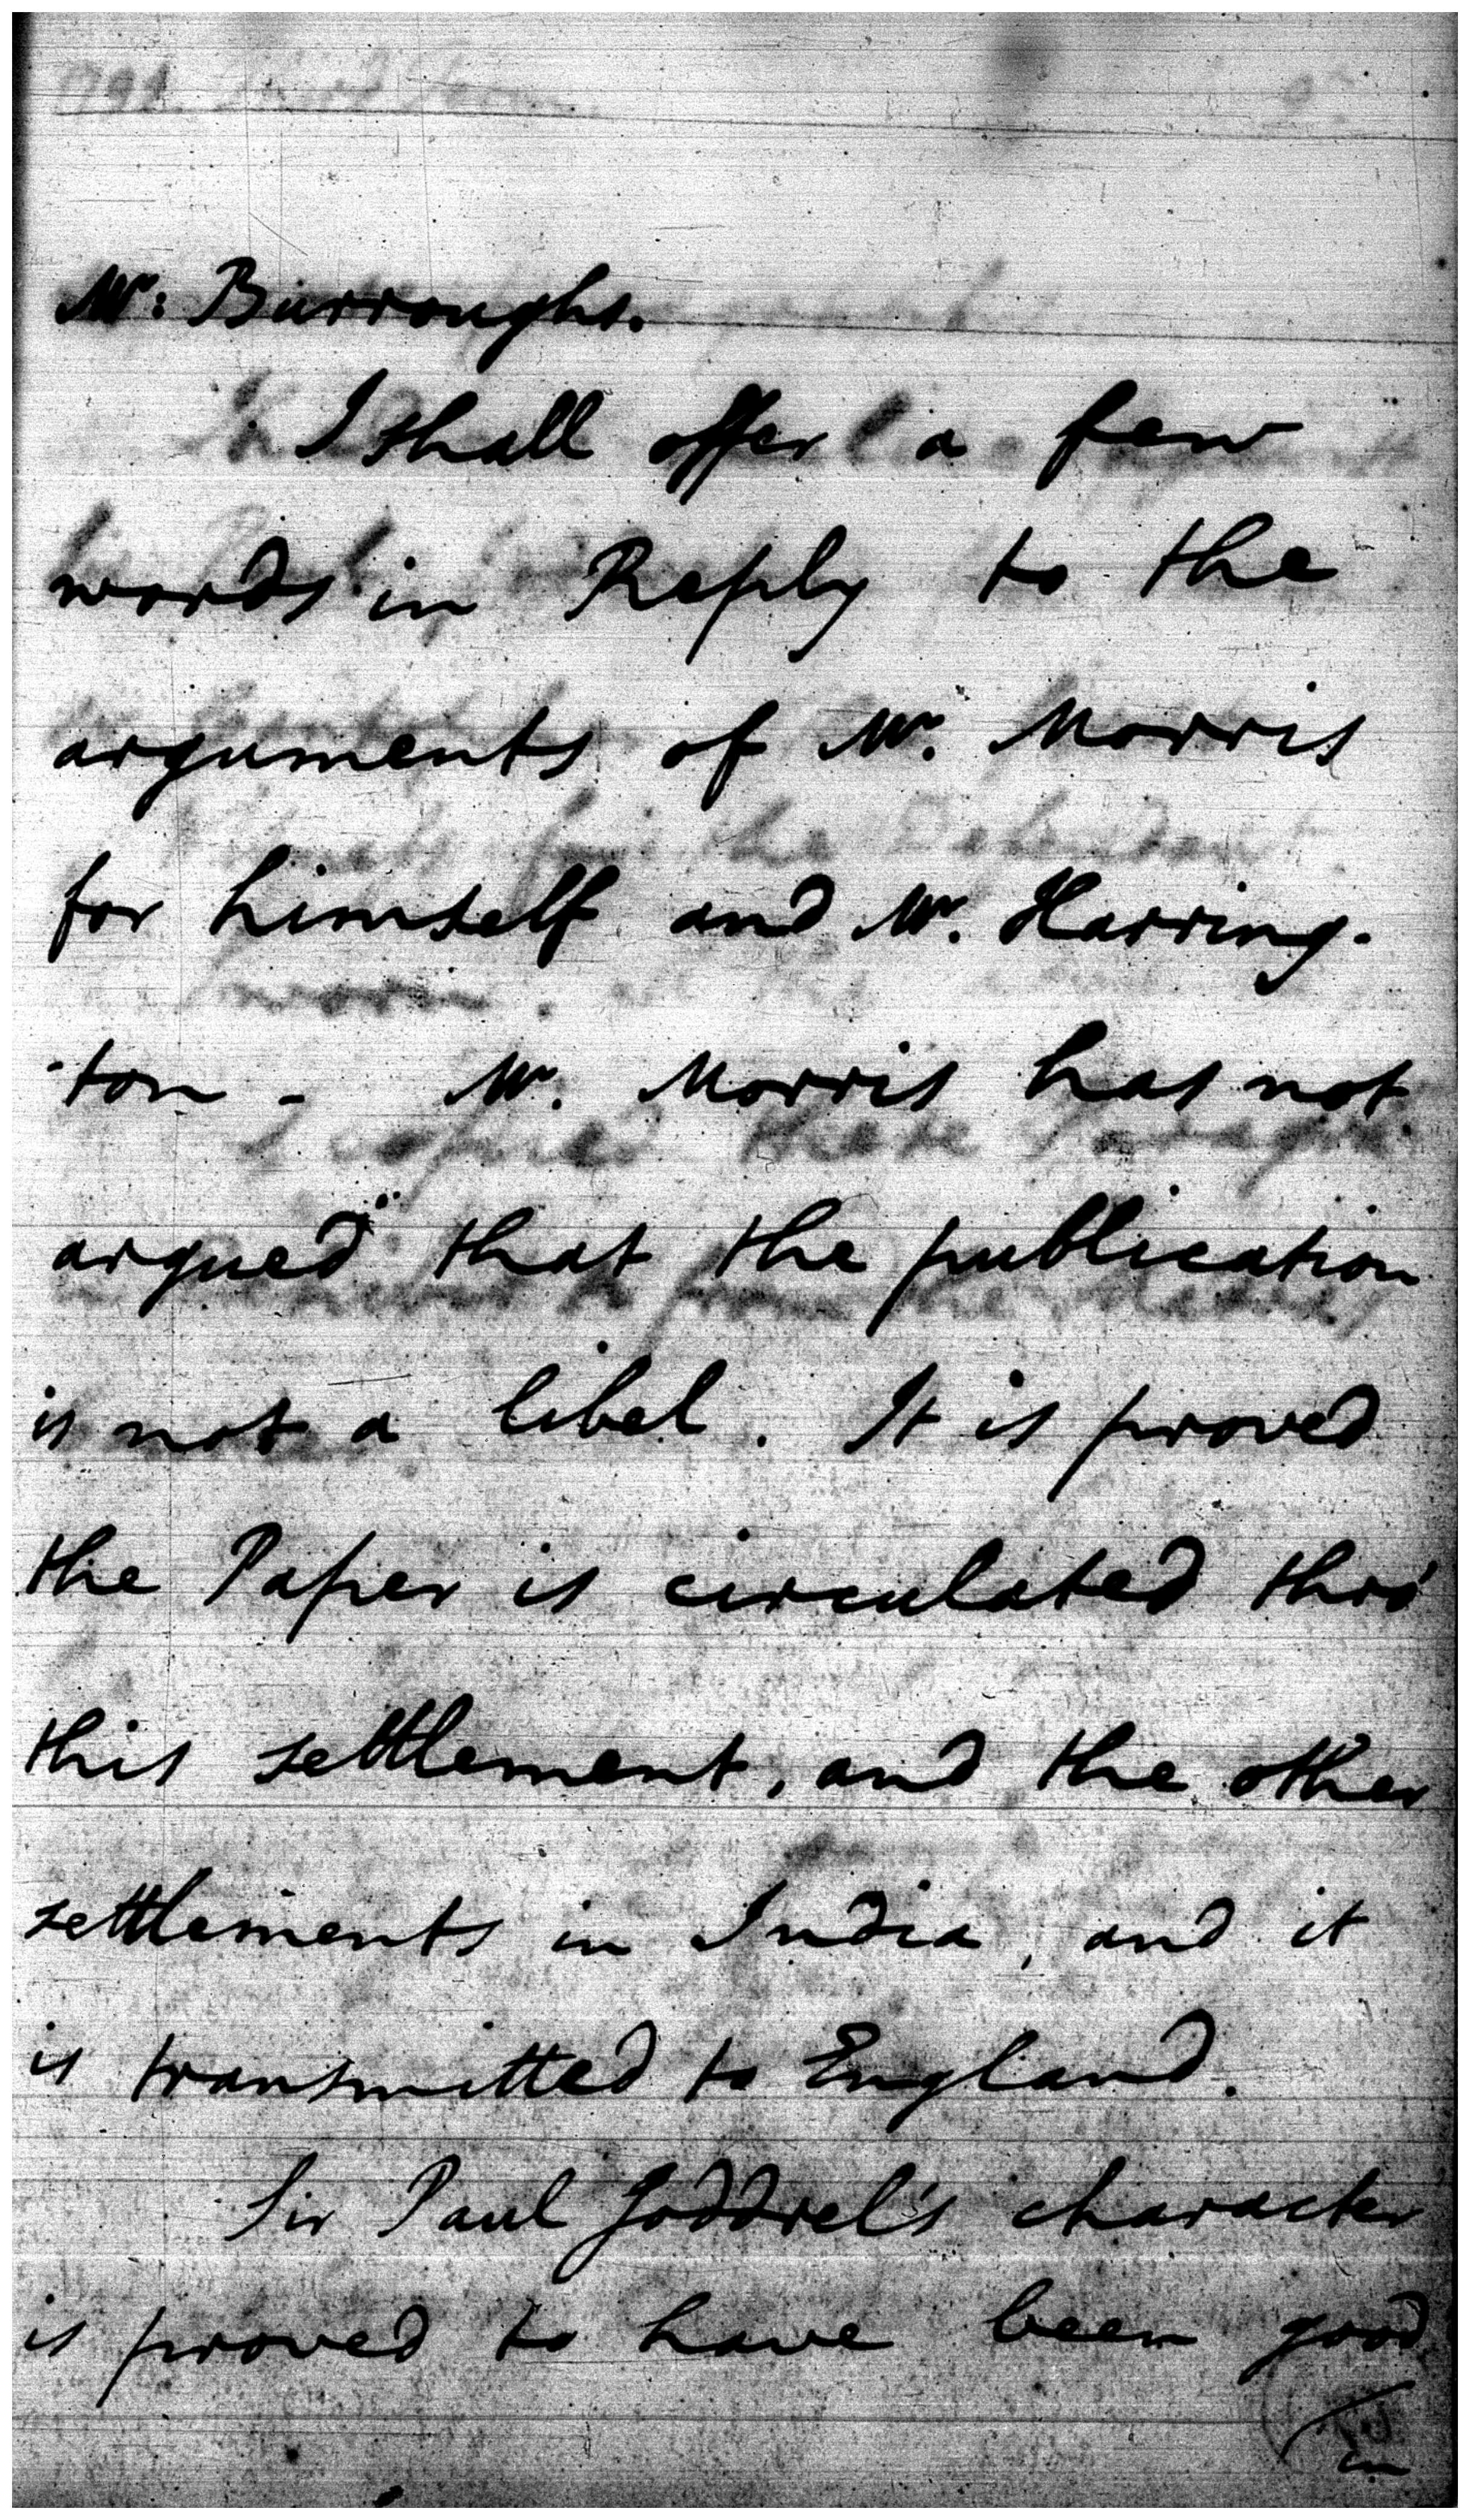 Mr: Burroughs.
I shall offer a few
words in Reply to the
arguments of Mr. Morris
for himself and Mr. Harring-
-ton - Mr. Morris has not
argued that the publication
is not a libel. It is proved
the Paper is circulated thro'
this settlement, and the other
settlements in India, and it
is transmitted to England.
Sir Paul Joddrel's character
is proved to have been good
/in